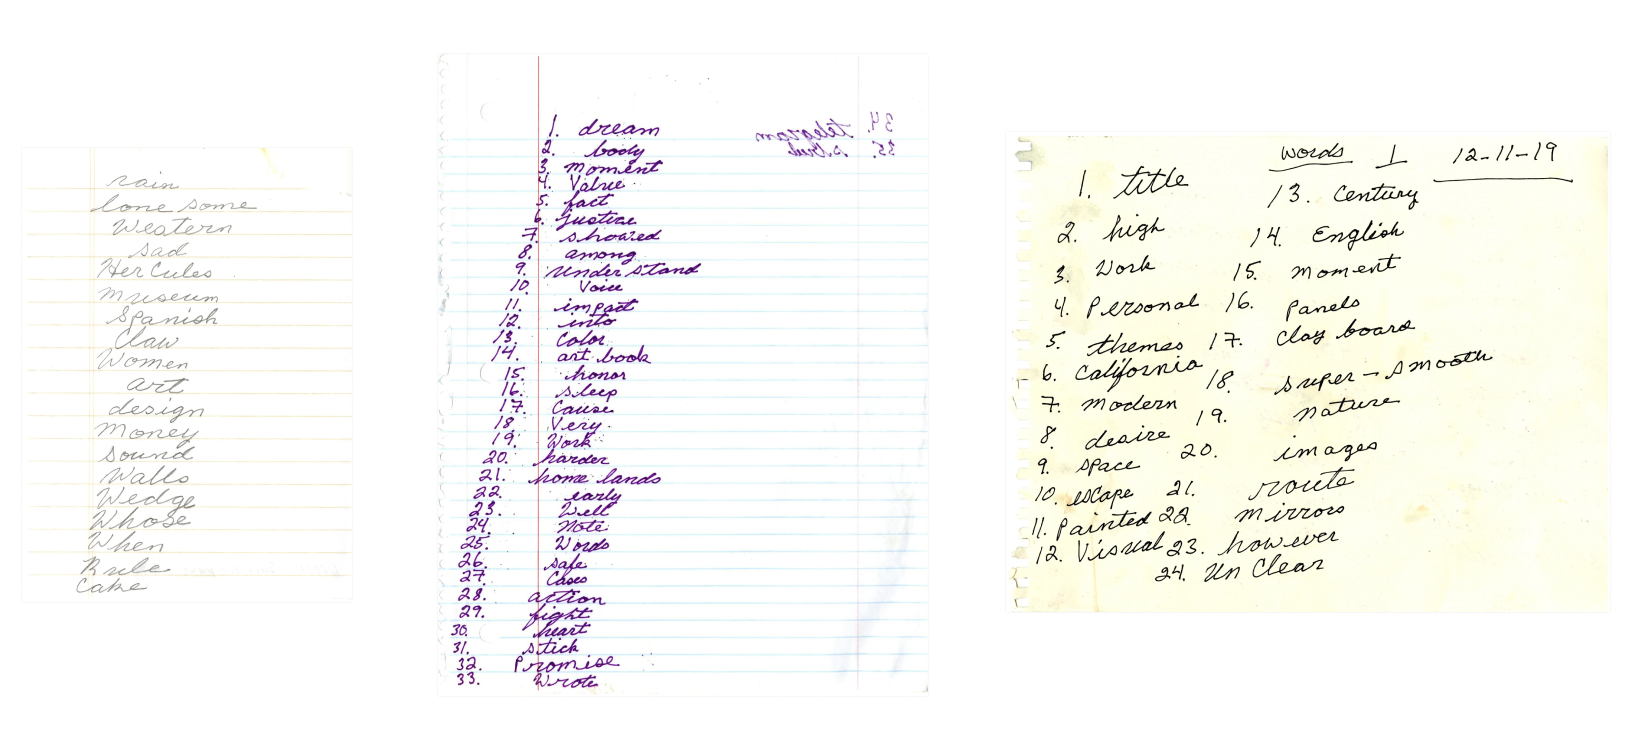 rain
lone some
Western
sad
Her Cules
museum
Spanish
Claw
Women
art
design
money
sound
Walls
Wedge
Whose
When
Rule
Cake
1. dream
2. body
3. moment
4. Value
5. fact
6. justice
7. showed
8. among
9. Under stand
10. Voice
11. impact
12. into
13. Color
14. art book
15. honor
16. sleep
17. Cause
18. Very
19. Work
20. harder
21. home lands
22. early
23. Well
24. Note
25. Words
26. safe
27. Cases
28. action
29. fight
30. heart
31. stick
32. Promise
33. Wrote
34. telegram
35.
words 1 12-11-19
1. title
2. high
3. Work
4. Personal
5. themes
6. California
7. modern
8. desire
9. space
10. escape
11. Painted
12. Visual
13. Century
14. English
15. moment
16. panels
17. Clay board
18. super-smooth
19. nature
20. images
21. route
22. mirrors
23. however
24. Un Clear